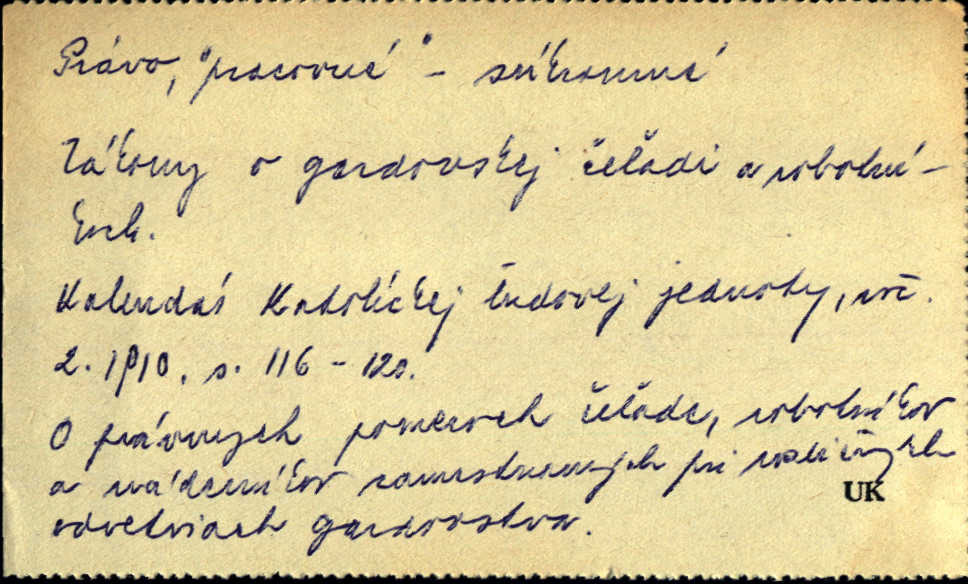 Právo, "pracovné" - súkromné
Zákony o gazdovskej čeľadi a robotní-
koch.
Kalendár Katolíckej ľudovej jednoty, roč.
2. 1910, s. 116 - 120.
O právnych pomeroch čeľade, robotníkov
a nádenníkov zamestnaných pri rozličných
UK
odvetviach gazdovstva.